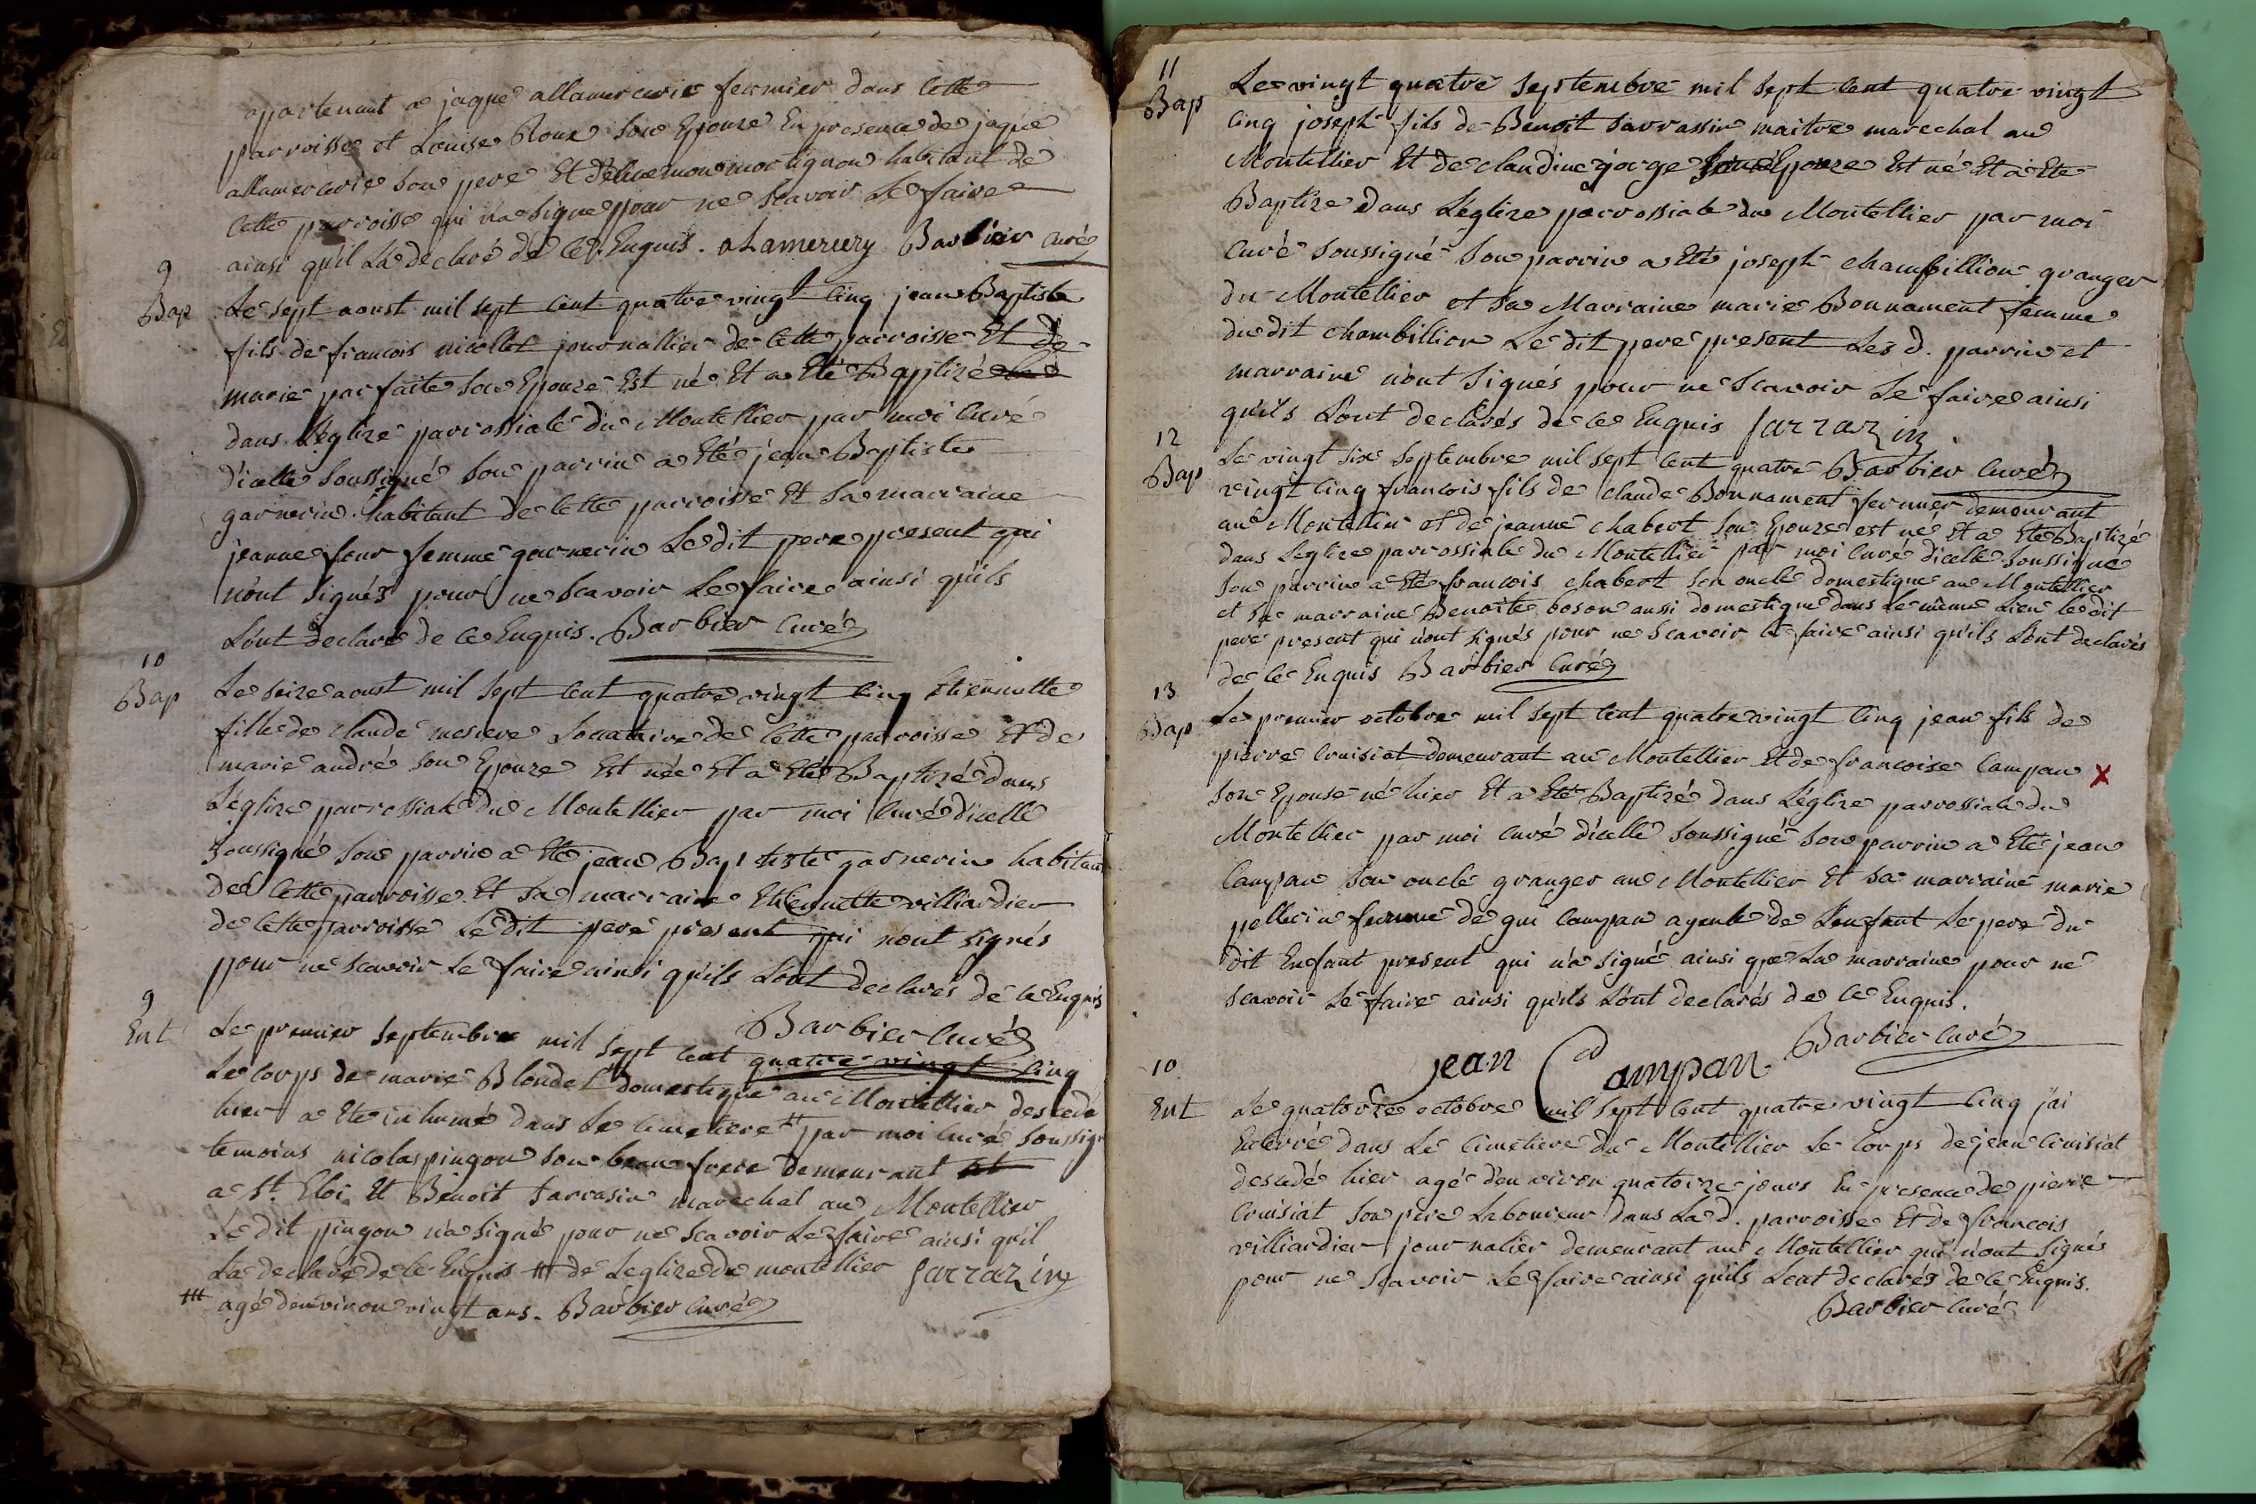 appartenant a jaque allamercerie fermier dans cette
parroisse et Louise Roux son Epouze En presence de jaque
allamercerie son pere Et mortignon habitant de
cette parroisse qui n'a signe pour ne scavoir Le faire
ainsi qu'il La declaré de ce Enquis. aLamercery Barbier curé
9
Bap
Le sept aoust mil sept cent quatre vingt cinq jean Baptiste
fils de francois nicollet journallier de cette parroisse Et de
marie parfaite son Epouze Est né Et a Eté Baptizé
dans L'eglize parrossiale du Montellier par moi curé
d'icelle soussigné son parrin a Eté jean Baptiste
garnerin habitant de cette parroisse Et sa marraine
jeanne four femme garnerin Le dit pere present qui
n'ont signés pour ne scavoir Le faire ainsi qu'ils
L'ont declaré de ce Enquis. Barbier curé
10
Bap
Le seize aoust mil sept cent quatre vingt cinq Etiennette
fille de claude locataire de cette parroisse Et de
marie andré son Epouze Est née Et a Eté Baptizé dans
L'eglize parrossiale du Montellier par moi curé d'icelle
soussigné son parrin a Eté jean Baptiste garnerin habitant
de cette parroisse Et sa marraine Etiennette villiardier
de cette parroisse Le dit pere present qui n'ont signés
pour ne scavoir Le faire ainsi qu'ils L'ont declarés de ce Enquis
Barbier curé
9
Ent
Le premier septembre mil sept cent quatre vingt cinq
Le corps de marie Blondel domestique au Montellier decedé
hier a Eté inhumé dans Le cimetiere # par moi curé soussigné
temoins nicolas pingon son beau frere demeurant
a St. Eloi Et Benoit sarrasin marechal au Montellier
Le dit pingon n'a signé pour ne scavoir Le faire ainsi qu'il
La declaré de ce Enquis # de Leglize du montellier Sarrazin
## agé d'environ vingt ans. Barbier curé
11
Bap
Le vingt quatre septembre mil sept cent quatre vingt
cinq joseph fils de Benoit sarrassin maitre marechal au
Montellier Et de claudine gorge son Epouze Est né Et a Eté
Baptize dans L'eglize parrossiale du Montellier par moi
curé soussigné son parrin a Eté joseph chambillion granger
du Montellier et sa Marraine marie Bonnament femme
du dit chambillion Le dit pere present Les d. parrin et
marraine n'ont signés pour ne scavoir Le faire ainsi
qu'ils L'ont declarés de ce Enquis Sarrazin
Barbier curé
12
Bap
Le vingt six septembre mil sept cent quatre
vingt cinq francois fils de claude Bonnament fermier demeurant
au Montellier et de jeanne chabert son Epouze est né Et a Eté Baptizé
dans Leglize parrossiale du Montellier par moi curé d'icelle soussigné
son parrin a Eté francois chabert son oncle domestique au Montellier
et sa marraine Benoite boson aussi domestique dans Le même Lieu le dit
pere present qui n'ont signés pour ne scavoir le faire ainsi qu'ils L'ont declarés
de ce Enquis Barbier curé
13
Bap
Le premier octobre mil sept cent quatre vingt cinq jean fils de
pierre cruisiat demeurant au Montellier Et de francoise Campan X
son Epouse né hier Et a Eté Baptizé dans L'eglize parrossiale du
Montellier par moi curé d'icelle soussigné son parrin a Eté jean
Campan son oncle granger au Montellier Et sa marraine marie
pellecin femme de guy campan ayeule de L'enfant Le pere du
dit Enfant present qui n'a signé ainsi que La marraine pour ne
scavoir Le faire ainsi qu'ils L'ont declarés de ce Enquis.
Barbier curé
jean Campan
10
Ent
Le quatorze octobre mil sept cent quatre vingt cinq j'ai
Enterré dans Le cimetiere du Montellier Le corps de jean cruisiat
decedé hier agé d'environ quatorze jours En presence de pierre
Cruisiat son pere Laboureur dans La d. parroisse Et de francois
villiardier journalier demeurant au Montellier qui n'ont signés
pour ne scavoir Le faire ainsi qu'ils L'ont declarés de ce Enquis.
Barbier curé